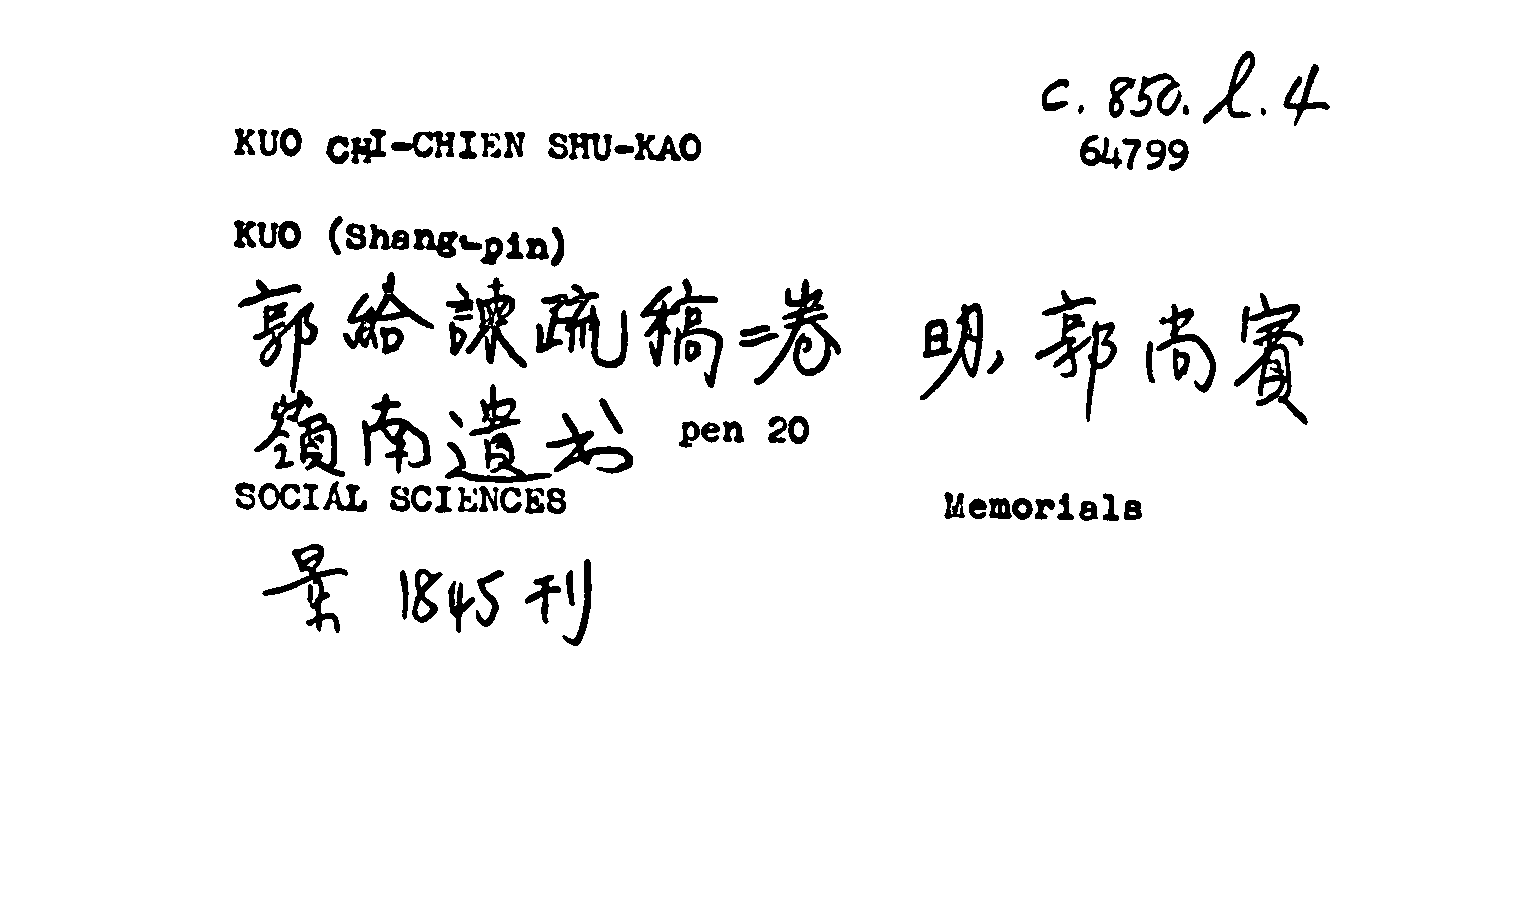 c. 850. l. 4
KUO CHI-CHIEN SHU-KAO
64799
KUO (Shang-pin)
郭給諫疏稿二卷 明 郭尚賓
嶺南遺书 pen 20
SOCIAL SCIENCES Memorials
景 1845 刊